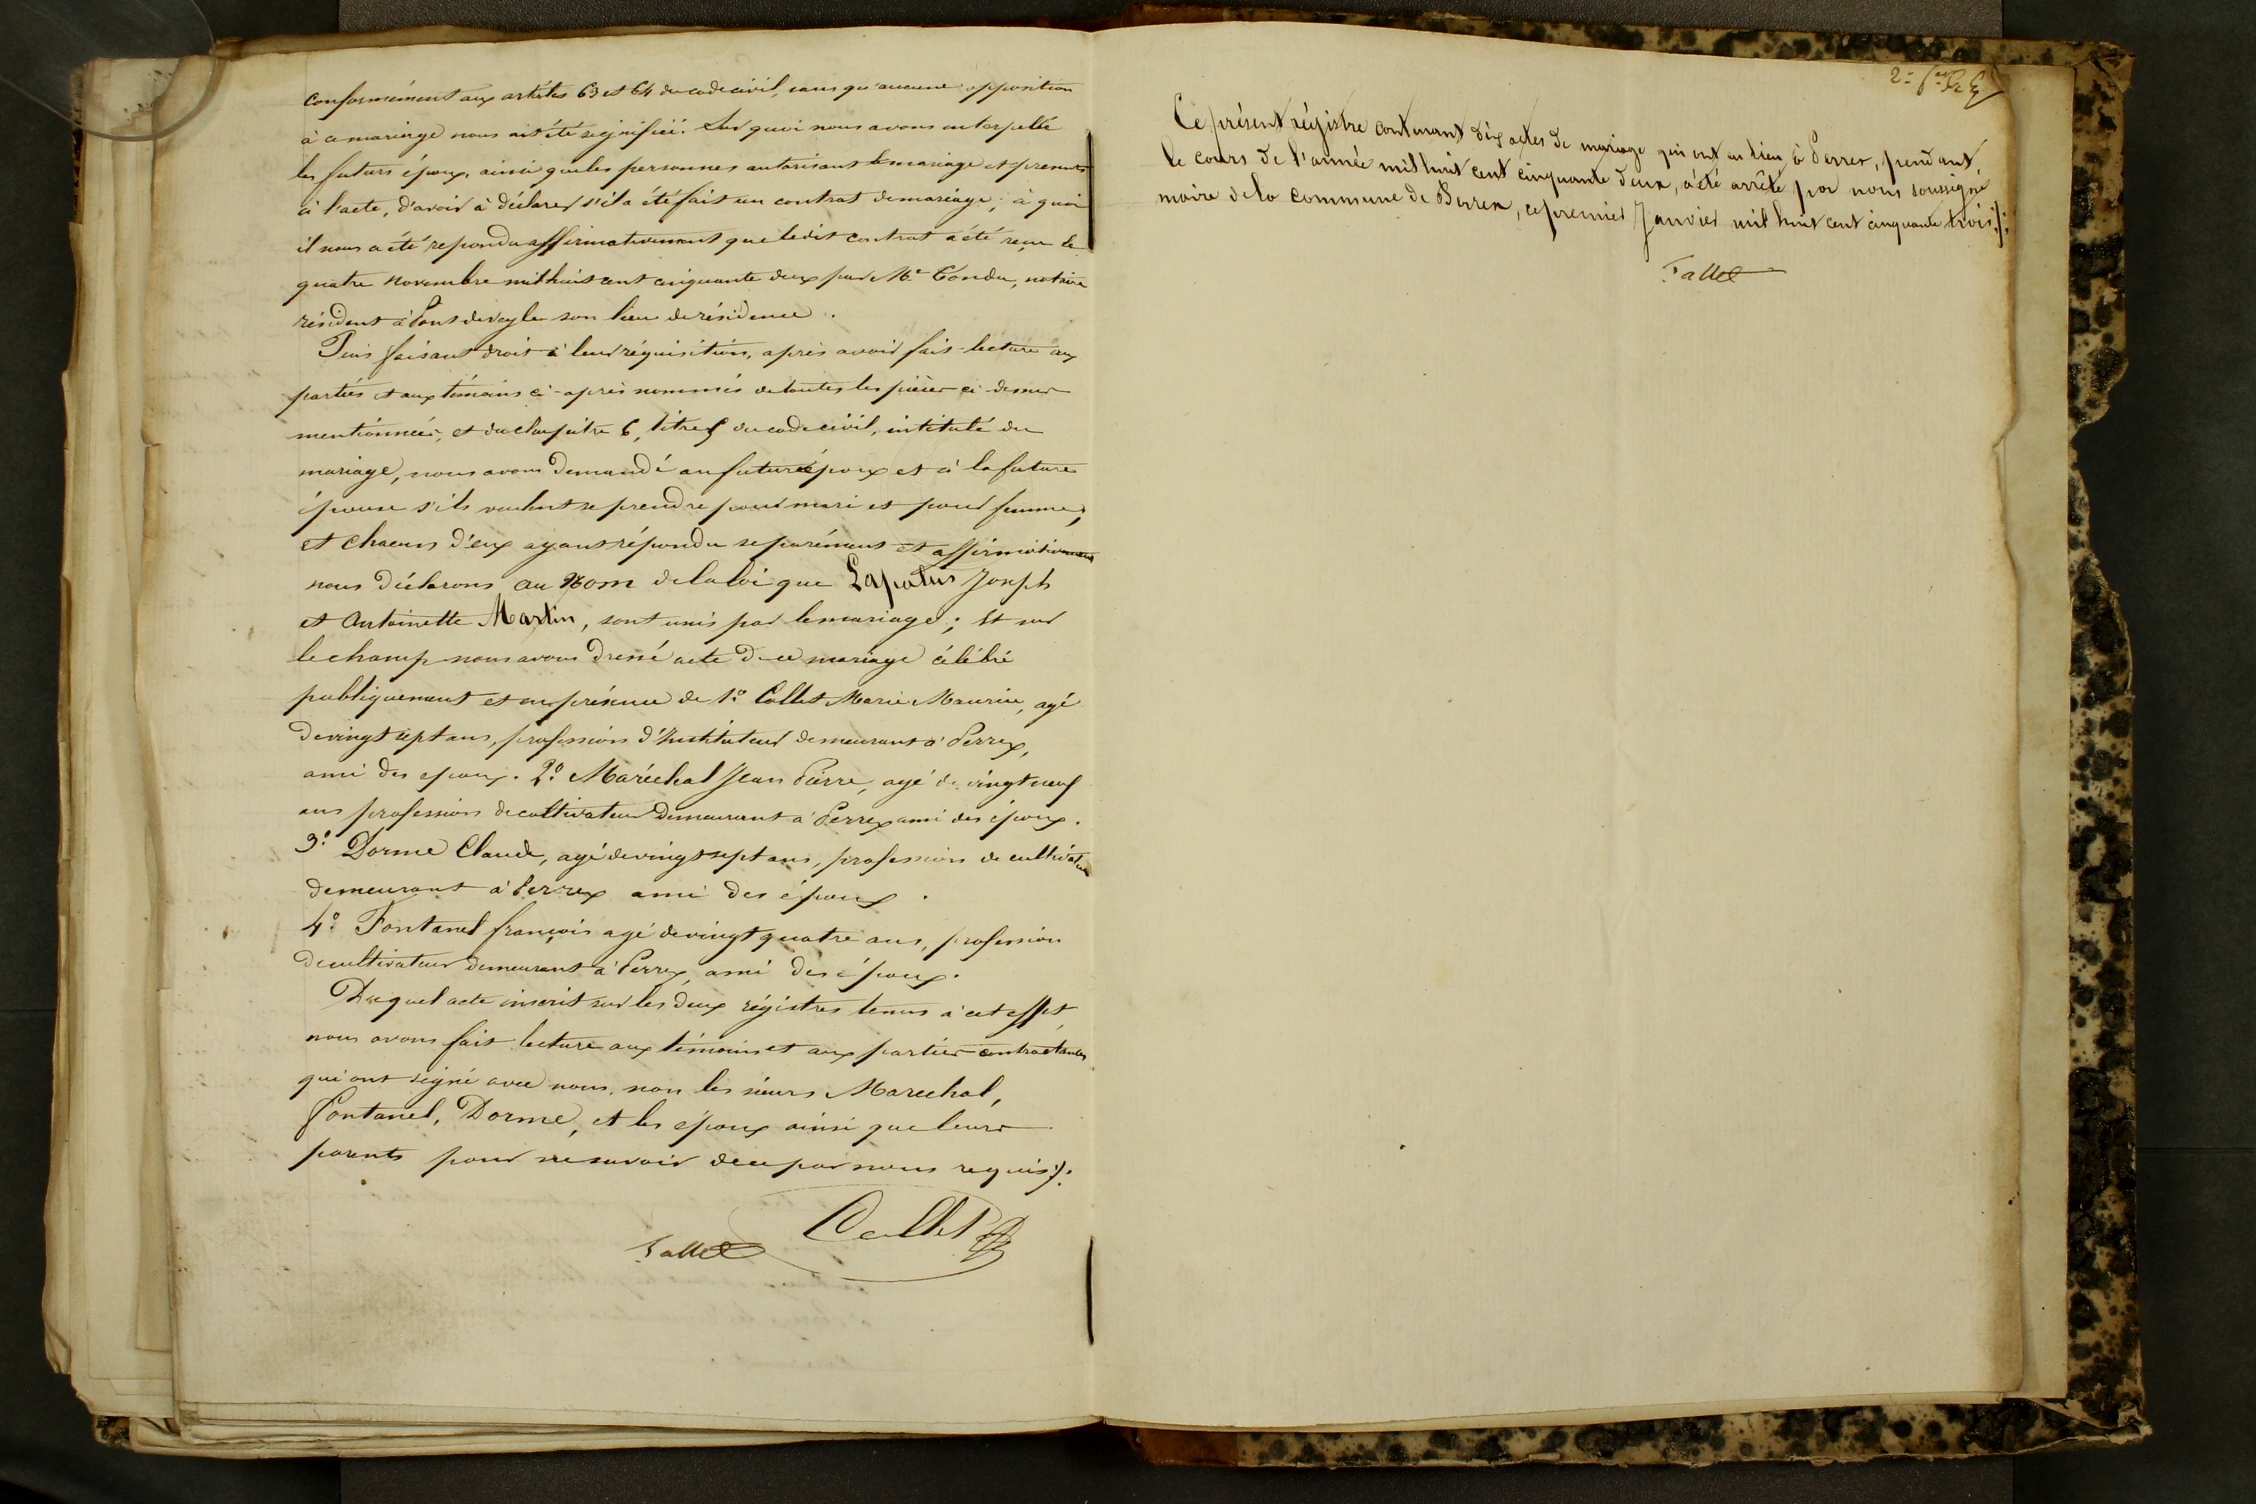 conformément aux artictes 63 et 64 du code civil, sans qu'aucune opposition
à ce mariage nous ait été signifiée. Sur quoi nous avons interpellé
les futurs époux, ainsi que les personnes autorisant le mariage et présents
à l'acte, d'avoir à déclarer s'il a été fait un contrat de mariage; à quoi
il nous a été repondu affirmativement que ledit contrat a été reçu le
quatre novembre mil huit cent cinquante deux par Me Condu, notaire
résident à Pont de veyle son lieu de résidence.
Puis faisant droit à leur réquisition, après avoir fait lecture aux
parties et aux témoins ci-après nommés de toutes les pièces ci-dessus
mentionnées, et du chapitre 6, titre 5 du code civil, intitulé du
mariage, nous avons demandé au futur époux et à la future
épouse s'ils veulent se prendre pour mari et pour femme;
et chacun d'eux ayant répondu separément et affirmativement
nous déclarons au Nom de la loi que Lapalus Joseph
et Antoinette Martin, sont unis par le mariage; Et sur
le champ nous avons dressé acte de ce mariage célébré
publiquement et en présence de 1o. Collet Marie Maurice, agé
de vingt sept ans, profession d'Instituteur demeurant à Perrex,
ami des epoux. 2o. Maréchal Jean Pierre, agé de vingt neuf
ans profession de cultivateur demeurant à Perrex ami des époux.
3o. Dorme Claude, agé de vingt sept ans, profession de cultivateur
demeurant à Perrex ami des époux.
4o. Fontanel françois agé de vingt quatre ans, profession
de cultivateur demeurant à Perrex, ami des époux.
Duquel acte inscrit sur les deux régistres tenus à cet effet,
nous avons fait lecture aux témoins et aux parties contractantes
qui ont signé avec nous, non les sieurs Marechal,
fontanel, Dorme, et les époux ainsi que leurs
parents pour ne savoir de ce par nous requis.
Collet
Fallet
Ce présent régistre contenant dix actes de mariage qui ont eu lieu à Perrex, pendant
le cours de l'année mil huit cent cinquante deux, a été arrêté par nous soussigné
maire de la commune de Perrex, ce premier Janvier mil huit cent cinquante trois.
Fallet